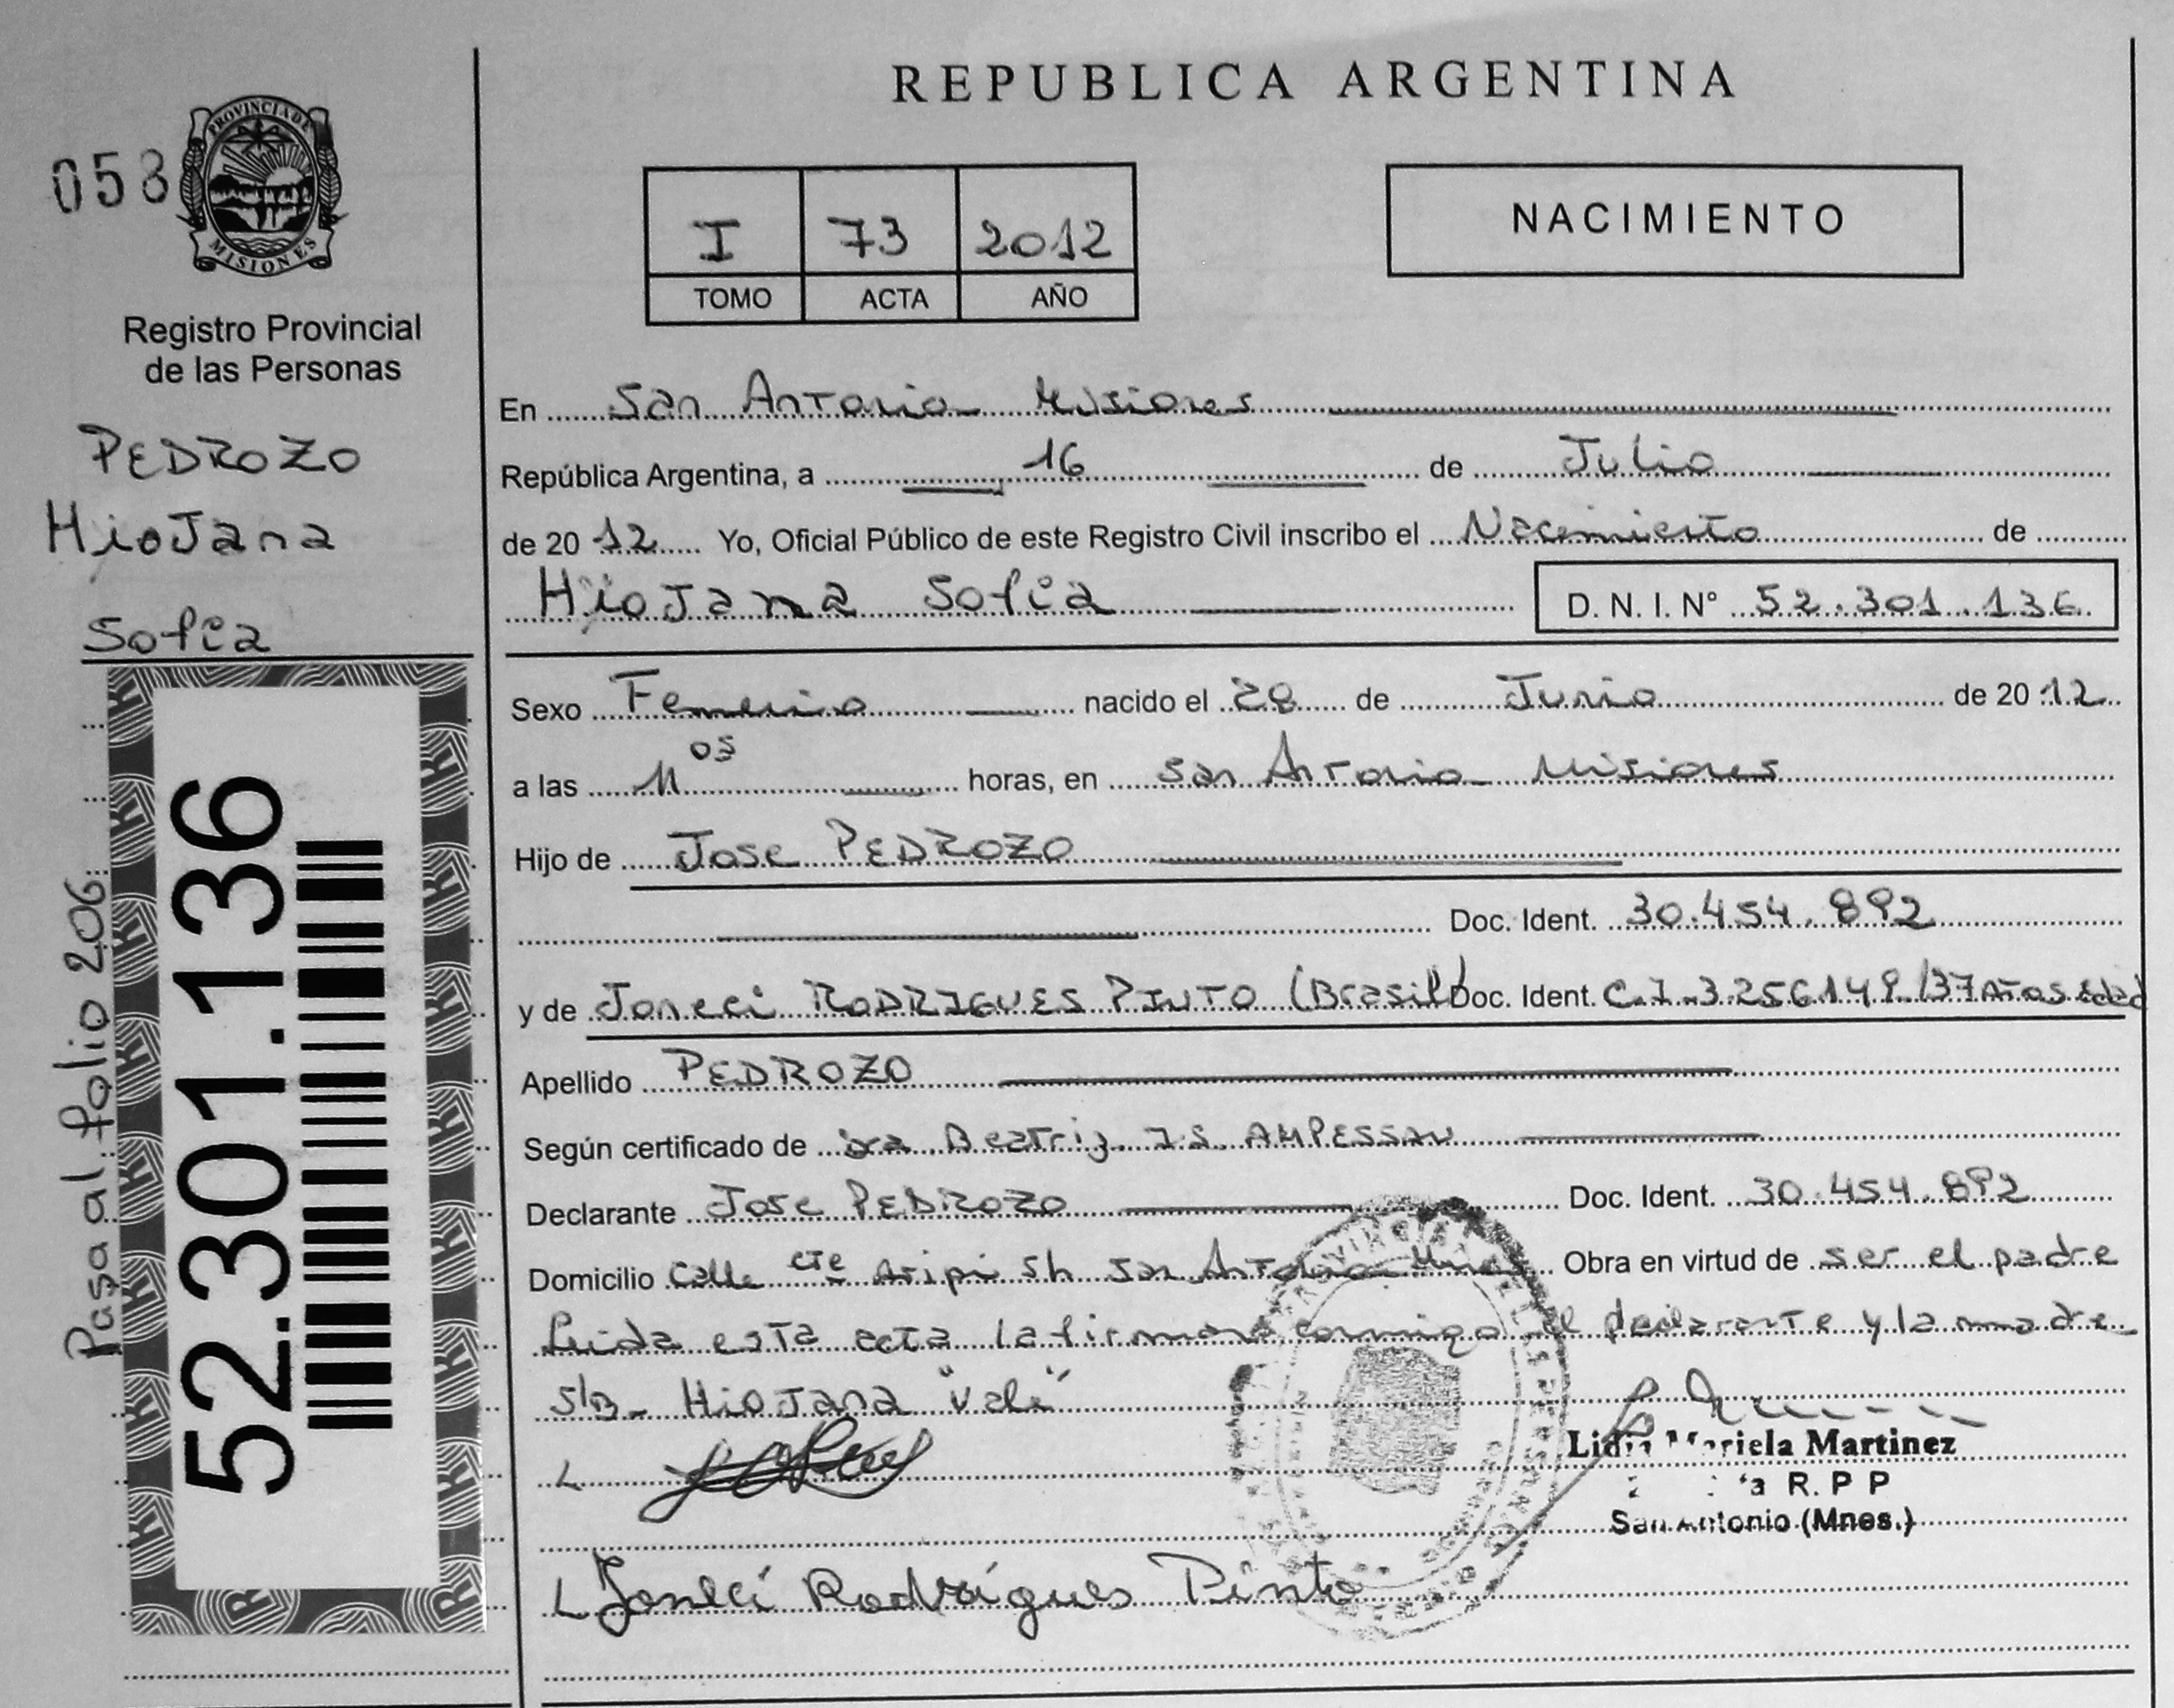 REPUBLICA ARGENTINA
058
PROVINCIA DE
MISIONES
Registro Provincial
de las Personas
PEDROZO
HioJana
Sofía
I 73 2012
TOMO ACTA AÑO
NACIMIENTO
En San Antonio Misiones
República Argentina, a 16 de Julio
de 2012 Yo, Oficial Público de este Registro Civil inscribo el Nacimiento de
HioJana Sofía D. N. I. N° 52.301.136
Sexo Femenino nacido el 28 de Junio de 2012
a las 11 05 horas, en San Antonio Misiones
Hijo de Jose PEDROZO
Doc. Ident. 30.454.892
y de Joneci RODRIGUES PINTO (Brasil) Doc. Ident. C.I. 3.256.149 /37 Años Edad
Apellido PEDROZO
Según certificado de Dra. Beatriz I.S. AMPESSAN
Declarante Jose PEDROZO Doc. Ident. 30.454.892
Domicilio Calle Cte Aripi s/n San Antonio Mnes Obra en virtud de ser el padre
Leida esta acta la firman conmigo el declarante y la madre
S/B- HioJana "Vale"
Lidia Mariela Martinez
R. P P
San Antonio (Mnes.)
Jonecí Rodrígues Pinto
Pasa al folio 206
52.301.136